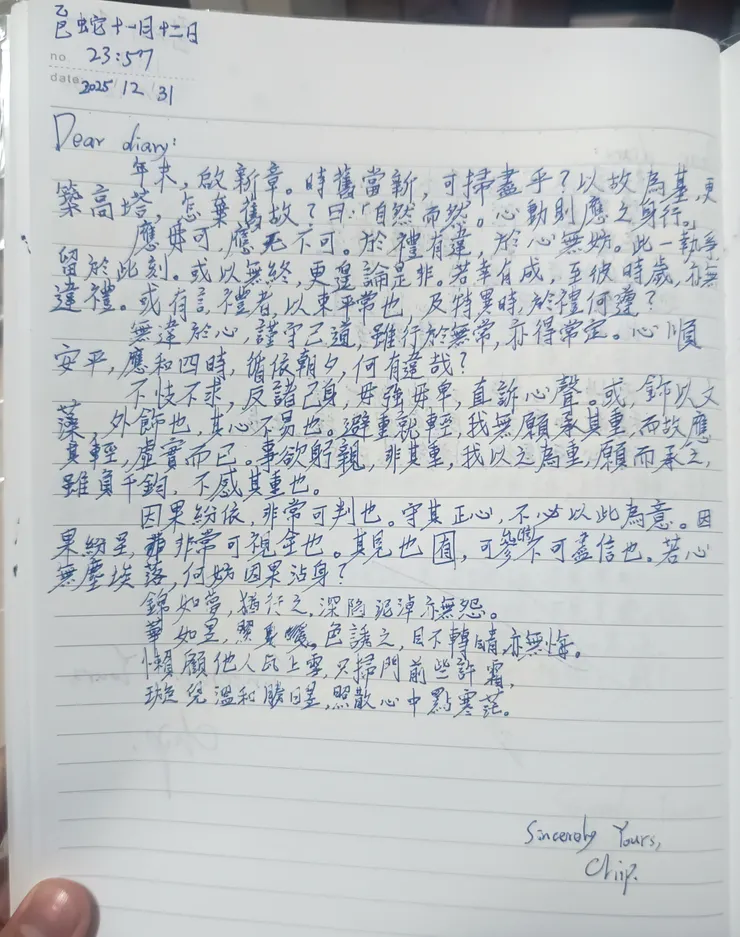 乙巳蛇十一月十二日
no. 23:57
date 2025/12/31
Dear diary:
年末，啟新章。時舊當新，可掃盡乎？以故為基，更
築高塔，怎棄舊故？曰：「自然而然。心動則應之身行。
應毋可，應无不可。於禮有違，於心無妨。此一執爭
留於此刻。或以無終，更遑論是非。若幸有成，至彼時歲，亦無
違禮。或有言，禮者，以束平常也，及特異時，於禮何違？
無違於心，謹守己道，雖行於無常，亦得常定。心順
安平，應和四時，循依朝夕，何有違哉？
不忮不求，反諸己身，毋強毋卑，直訴心聲。或飾以文
藻，外飾也，其心不易也。避重就輕，我無願承其重，而故應
其輕，虛實而已。事欲躬親，非其重，我以之為重，願而承之，
雖負千鈞，不感其重也。
因果紛依，非常可判也。守其正心，不必以此為意。因
果紛呈，非常可視全也。其見也，可參不可盡信也。若心
無塵埃落，何妨因果沾身？
錦如夢，猶行之，深陷泥淖亦無怨。
華如星，照身。色誘之，目不轉睛亦無悔。
懶顧他人瓦上雪，只掃門前些許霜，
溫和勝日星，照散心中點寒茫。
Sincerely Yours,
Chip.